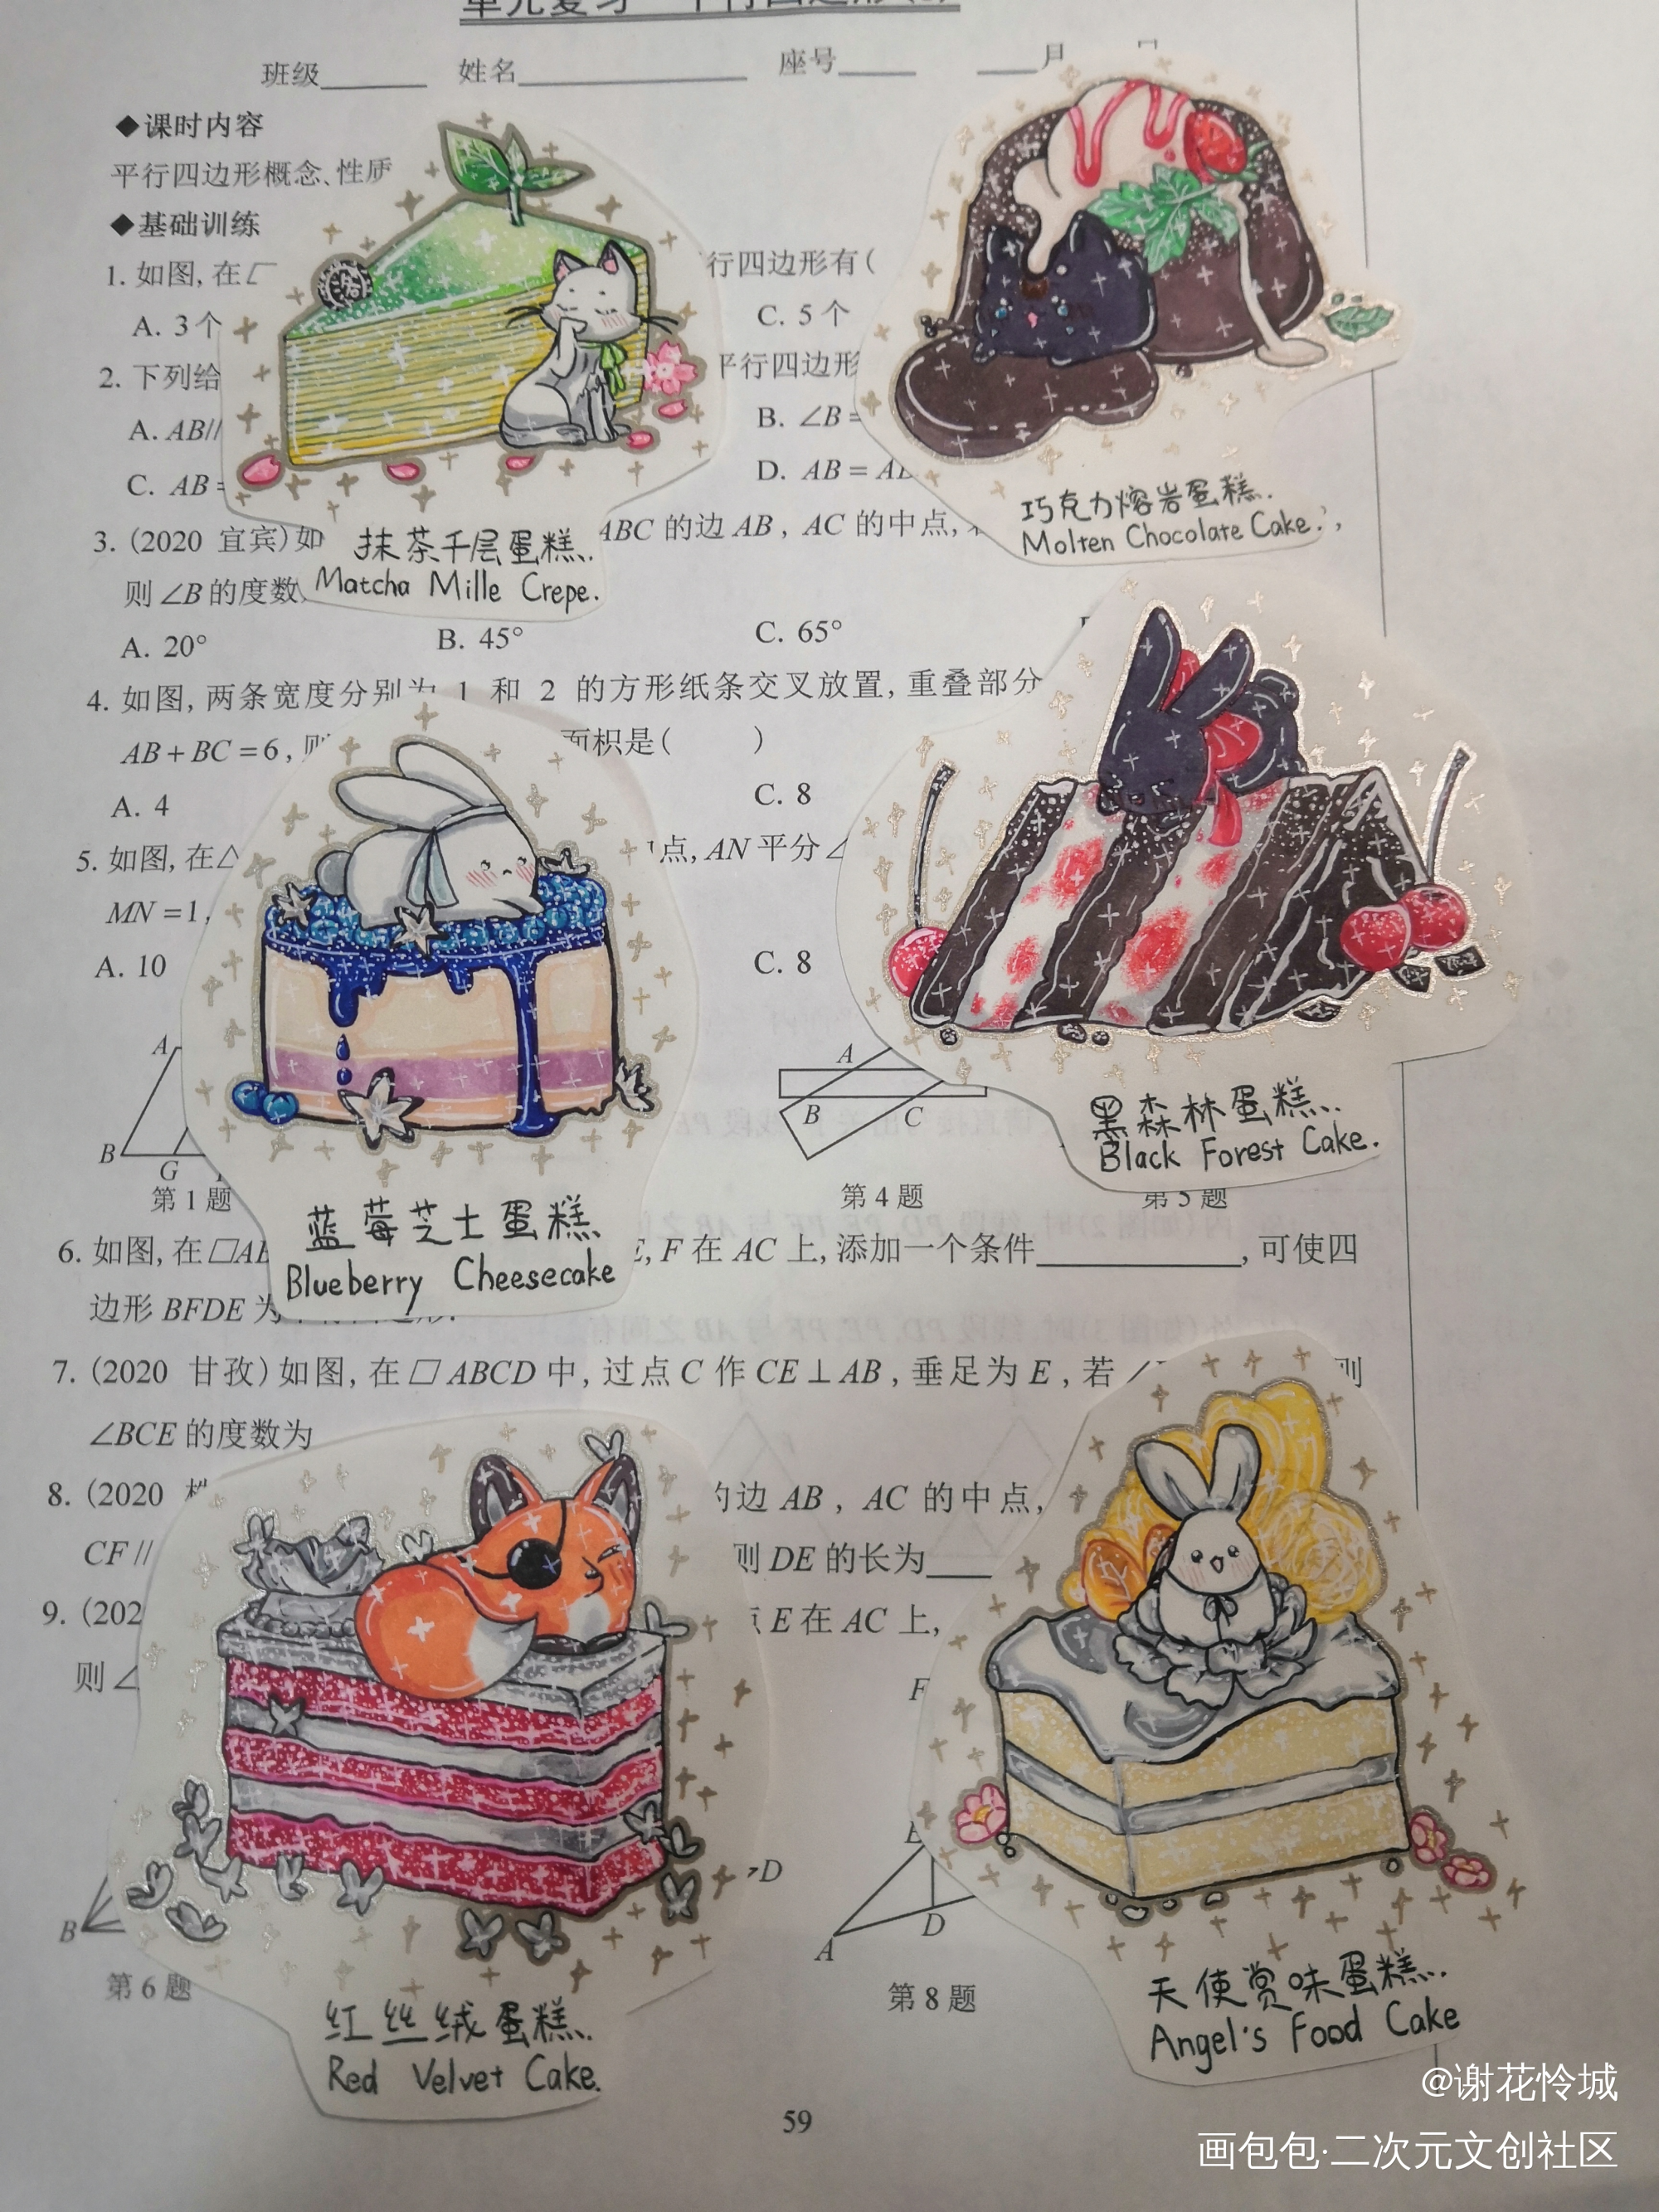 班级 姓名 座号 月
◆课时内容
平行四边形概念、性质
◆基础训练
1. 如图, 在 行四边形有(
A. 3个 C. 5个
2. 下列给 平行四边形
A. AB// B. ∠B =
C. AB = D. AB =
巧克力熔岩蛋糕.
Molten Chocolate Cake.
3. (2020 宜宾)如 ABC 的边 AB, AC 的中点,
抹茶千层蛋糕..
Matcha Mille Crepe.
则 ∠B 的度数
A. 20° B. 45° C. 65°
4. 如图, 两条宽度分别为 1 和 2 的方形纸条交叉放置, 重叠部分
AB + BC = 6, 则 面积是( )
A. 4 C. 8
5. 如图, 在△ 点, AN 平分∠
MN = 1,
A. 10 C. 8
A
B G
第 1 题
A
B C
第 4 题
第 5 题
黑森林蛋糕..
Black Forest Cake.
蓝莓芝士蛋糕
Blueberry Cheesecake
6. 如图, 在□AB E, F 在 AC 上, 添加一个条件 , 可使四
边形 BFDE 为
7. (2020 甘孜) 如图, 在 □ ABCD 中, 过点 C 作 CE⊥AB, 垂足为 E, 若 ∠ 则
∠BCE 的度数为
8. (2020 的边 AB, AC 的中点,
CF // 则 DE 的长为
9. (202 点 E 在 AC 上,
则 ∠
F
D
B
第 6 题
A D
第 8 题
红丝绒蛋糕..
Red Velvet Cake.
天使赏味蛋糕..
Angel's Food Cake
59
@谢花怜城
画包包·二次元文创社区